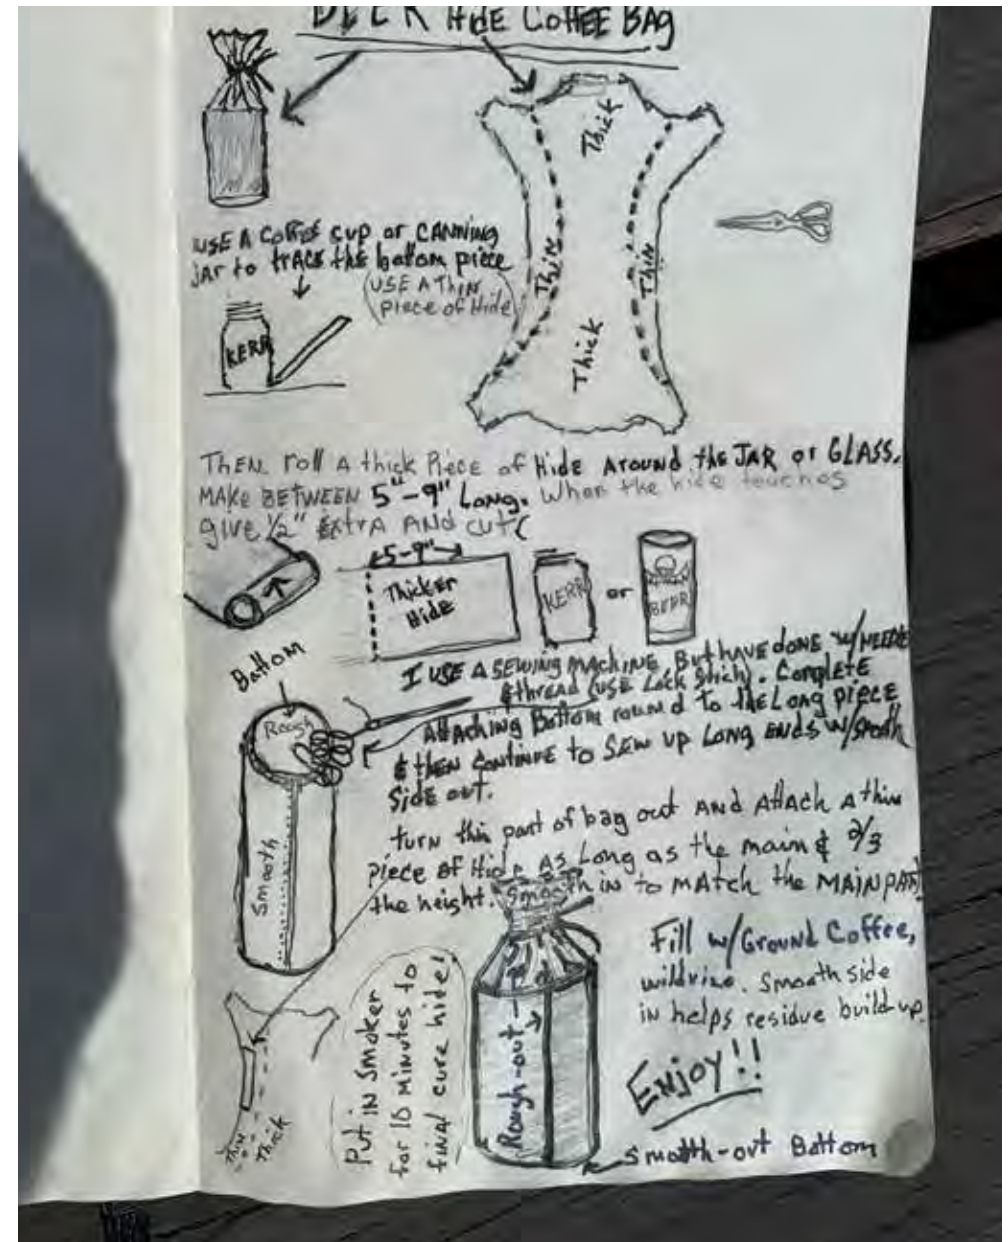 DEER Hide Coffee BAG
Thick
Thin
Thin
Thick
USE A Coffee cup or CANNing
jar to trace the bottom piece
(USE A Thin
piece of Hide)
KERR
THEN roll A thick Piece of Hide AROUND the JAR or GLASS.
MAKE BETWEEN 5"-9" LONG. When the hide touches
give 1/2" Extra AND cut
5-9"
Thicker
Hide
KERR
or
BEER
Bottom
Rough
Smooth
I USE A SEWING MACHINE, But HAVE DONE w/NEEDLE
& thread (USE Lock Stich). Complete
Attaching Bottom round to the Long piece
& then continue to SEW up Long ENDS w/smooth
Side out.
turn this part of bag out AND Attach A thin
piece of Hide AS Long as the main & 2/3
the height. Smooth in to MAtch the MAIN part
Smooth
Fill w/Ground Coffee,
wildrice. Smooth side
in helps residue build-up.
Enjoy!!
Put in Smoker
for 10 minutes to
final cure hide!
Thin
Thick
Rough-out
Smooth-out Bottom